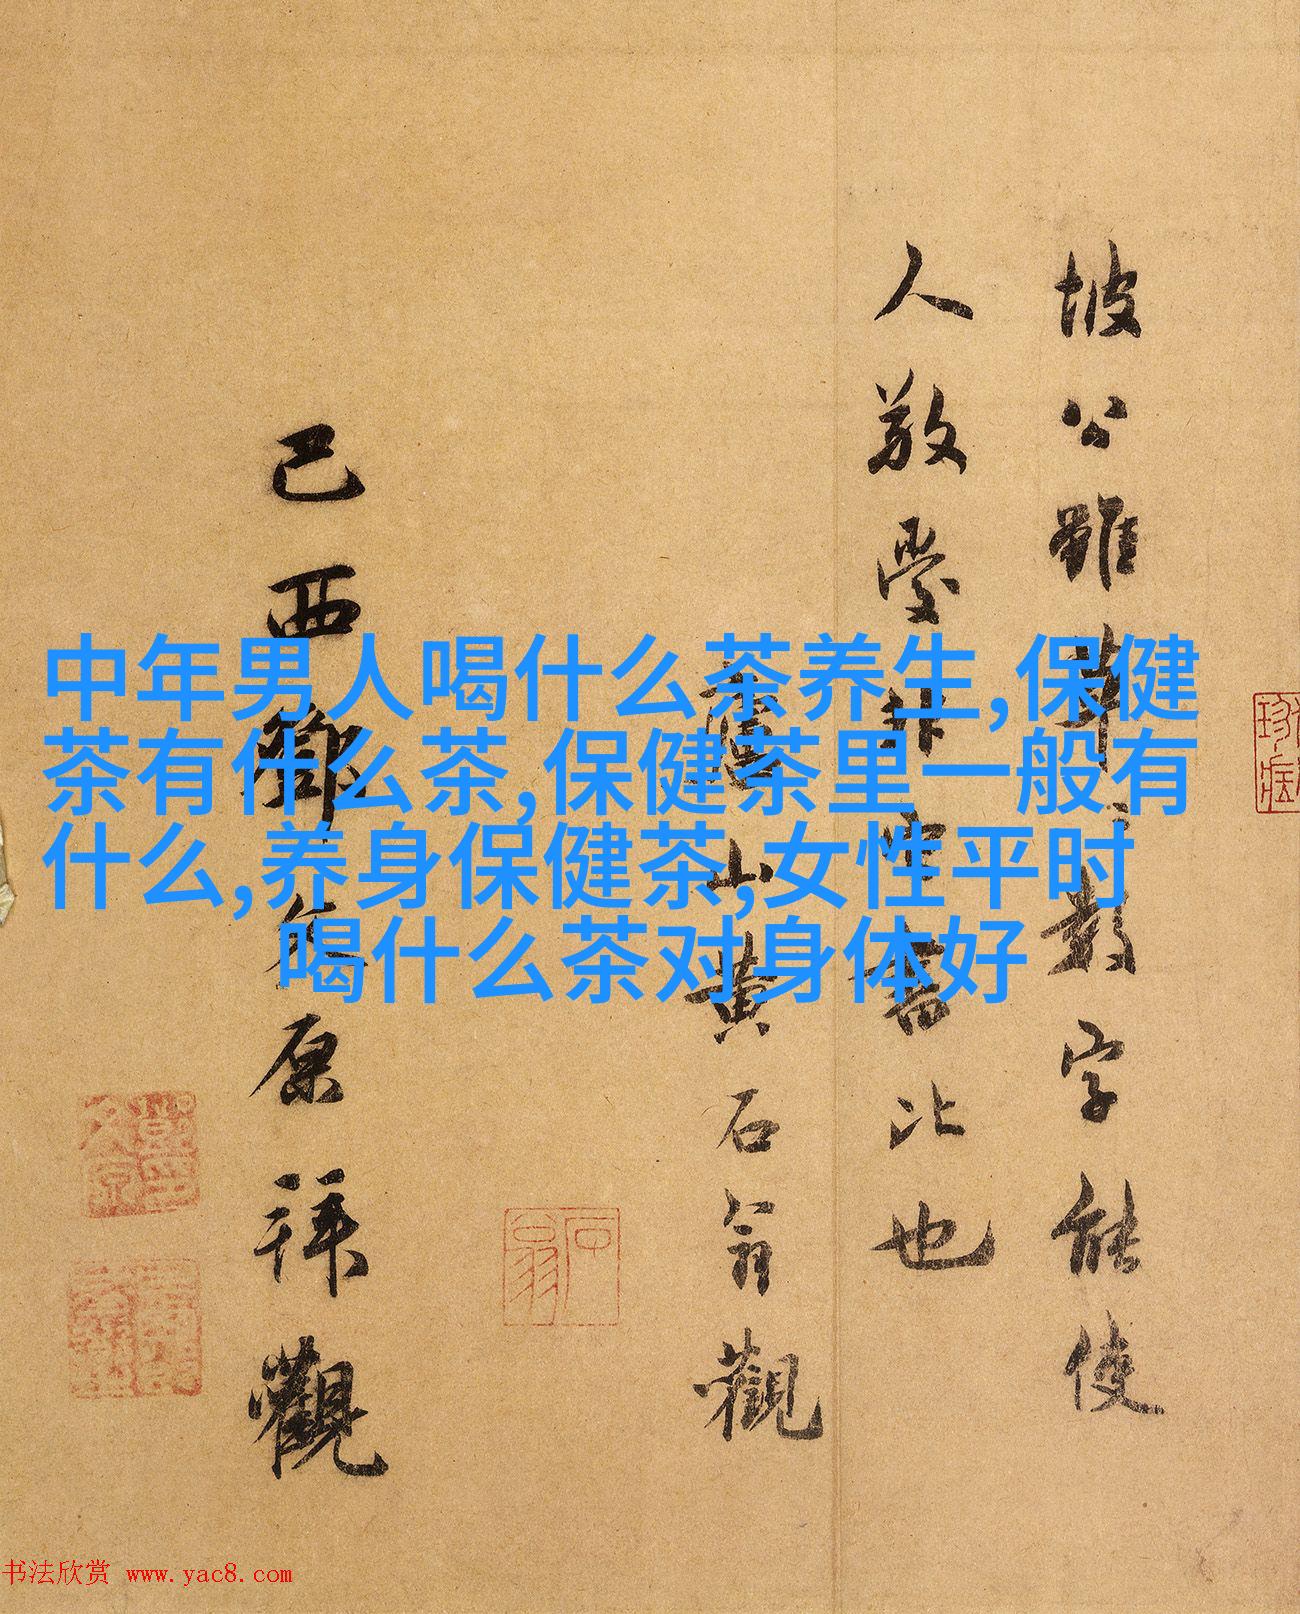 坡公雖草草數字能使
人敬愛非四書比也
舊山黄石翁觀
己酉鄧文原拜觀
石翁
中年男人喝什么茶养生,保健
茶有什么茶,保健茶里一般有
什么,养身保健茶,女性平时
喝什么茶对身体好
书法欣赏 www.yac8.com